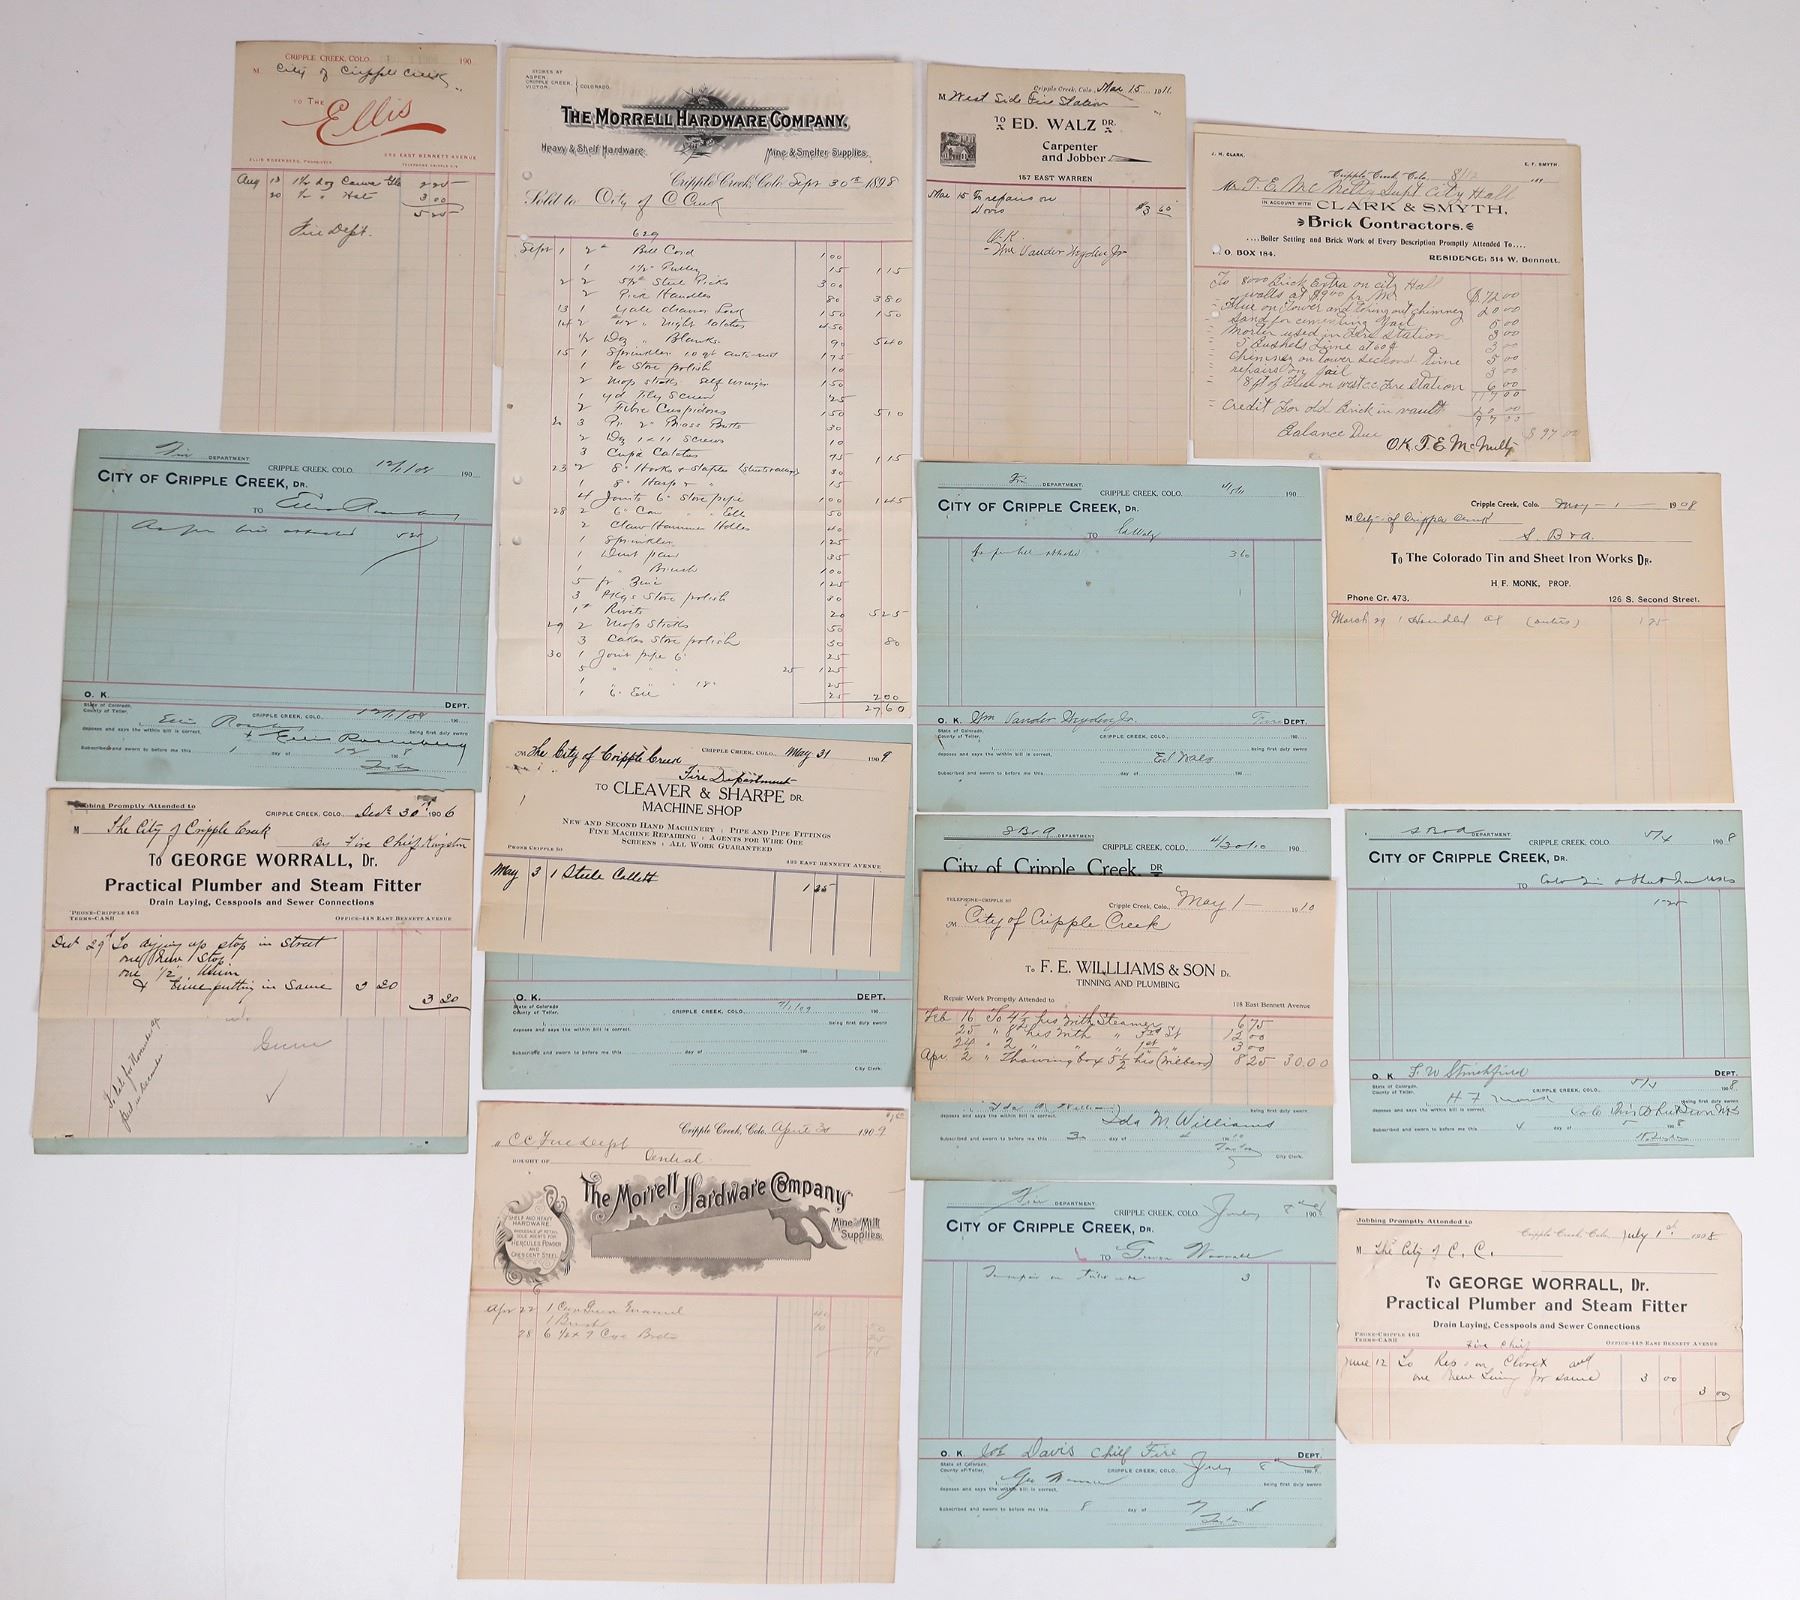 CRIPPLE CREEK, COLO. 190
M. City of Cripple Creek
TO THE
Ellis
ELLIS ROSENBERG, PROPRIETOR
EAST BENNETT AVENUE
Aug 13 1/2 Doz Canvas Glo 2 25
20 1/2 " Hat 3 00
5 25
Fire Dept.
STORES AT
ASPEN
CRIPPLE CREEK
VICTOR,
COLORADO.
THE MORRELL HARDWARE COMPANY.
Heavy & Shelf Hardware. Mine & Smelter Supplies.
Cripple Creek, Colo. Sept 30th 1898
Sold to City of C Creek
629
Sept 1 2" Bell Cord 1 00
1 1 1/2" Pulley 15 1 15
2 2 5/6# Steel Picks 3 00
2 Pick Handles 80 3 80
13 1 Yale drawer Lock 1 50 1 50
14 2 " Night latches 4 50
1/2 Doz " Blanks 90 5 40
15 1 Sprinkler 10 qt 1 75
1 Pc Stove polish 10
2 Mop sticks self wringer 1 50
1 yd Screen 25
2 Fibre Cuspidores 1 50 5 10
20 3 Pr 2" Brass Butts 30
2 Doz 1 x 11 Screws 10
3 Cupd Catches 75 1 15
23 2 8" Hooks & Staples 30
1 8" Hasp & " 15
4 Joints 6" Stove pipe 1 00 1 45
28 2 6" Com " Ells 50
2 Claw Hammer Hdles 40
1 Sprinkler 1 25
1 Dust pan 35
1 " Brush 1 00
5 ft Zinc 1 25
3 Pkgs Stove polish 30
1# Rivets 20 5 25
29 2 Mop Sticks 50
3 Cakes Stove polish 30 80
30 1 Joint pipe 6" 25
5 " " " 25 1 25
1 " " " 18" 25
1 6" Ell 25 2 00
27 60
Cripple Creek, Colo., Mar 15 1911.
M West Side Fire Station
TO ED. WALZ DR.
Carpenter
and Jobber
157 EAST WARREN
Mar 15 To repairs on
Doors $3 60
O.K.
Wm Vander Heyden Jr
J. H. CLARK. E. F. SMYTH.
Cripple Creek, Colo. 8/12 189
Mr. T. E. McNelty Supt City Hall
IN ACCOUNT WITH CLARK & SMYTH,
Brick Contractors.
....Boiler Setting and Brick Work of Every Description Promptly Attended To....
P. O. BOX 184. RESIDENCE: 514 W. Bennett.
To 8000 Brick Extra on City Hall
walls at $9 00 pr M. $72 00
" Flue on Tower and toping out chimney 20 00
" Sand for cementing Jail 5 00
" Morter used in Fire Station 3 00
" 5 Bushels Lime at 60¢ 3 00
" Chimney on Tower second time 5 00
" repairs on Jail 3 00
" 18 ft of Flue on west C.C. Fire Station 6 00
117 00
" Credit For old Brick in vault 20 00
97 00
Balance Due $97 00
O.K. T. E. McNulty
Fire DEPARTMENT.
CRIPPLE CREEK, COLO. 12/1/08 190
CITY OF CRIPPLE CREEK, DR.
TO Ellis Rosenberg
As per bill attached 5 25
O. K. DEPT.
State of Colorado,
County of Teller,
CRIPPLE CREEK, COLO., 12/1/08 190
I, Ellis Rosenberg being first duly sworn
deposes and says the within bill is correct.
x Ellis Rosenberg
Subscribed and sworn to before me this 1 day of 12 190 8
Fire DEPARTMENT.
CRIPPLE CREEK, COLO. 4/5/11 190
CITY OF CRIPPLE CREEK, DR.
TO Ed Walz
As per bill attached 3 60
O. K. Wm Vander Heyden Jr. Fire DEPT.
State of Colorado,
County of Teller,
CRIPPLE CREEK, COLO., 190
being first duly sworn
deposes and says the within bill is correct.
Ed Walz
Subscribed and sworn to before me this day of 190
Cripple Creek, Colo. May - 1 - 1908
M City of Cripple Creek
S. B & A.
To The Colorado Tin and Sheet Iron Works Dr.
H. F. MONK, PROP.
Phone Cr. 473. 126 S. Second Street.
March 29 1 1 25
Jobbing Promptly Attended to
CRIPPLE CREEK, COLO. Dec 30th 1906
M The City of Cripple Creek
By Fire Chief Kingston
TO GEORGE WORRALL, Dr.
Practical Plumber and Steam Fitter
Drain Laying, Cesspools and Sewer Connections
'PHONE-CRIPPLE 463
TERMS-CASH
OFFICE-448 EAST BENNETT AVENUE
Dec 29 To digging up stop in Street
one New Stop
one 1/2 Union
& Time putting in Same 3 20
3 20
M The City of Cripple Creek CRIPPLE CREEK, COLO., May 31 1909
Fire Department
TO CLEAVER & SHARPE DR.
MACHINE SHOP
NEW AND SECOND HAND MACHINERY : PIPE AND PIPE FITTINGS
FINE MACHINE REPAIRING : AGENTS FOR WIRE ORE
SCREENS : ALL WORK GUARANTEED
PHONE CRIPPLE 50 EAST BENNETT AVENUE
May 3 1 Steele Collett 1 35
O. K. DEPT.
State of Colorado
County of Teller,
CRIPPLE CREEK, COLO., 7/1/09
I, being first duly sworn
deposes and says the within bill is correct.
Subscribed and sworn to before me this day of 190
City Clerk.
S B & A DEPARTMENT
CRIPPLE CREEK, COLO., 4/30/10 190
City of Cripple Creek, DR
TELEPHONE-CRIPPLE
Cripple Creek, Colo., May 1 - 1910
M. City of Cripple Creek
TO F. E. WILLLIAMS & SON Dr.
TINNING AND PLUMBING
Repair Work Promptly Attended to 118 East Bennett Avenue
Feb 16 To 4 1/2 hrs with Steamer 6 75
25 " 8 " hrs with " 3rd St 12 00
24 " 2 " " 1st " 3 00
Apr. 2 " Thawing box 5 1/2 hrs 8 25 30.00
deposes and says the within bill is correct. being first duly sworn
Ida M. Williams
Subscribed and sworn to before me this 30 day of 4 1910
City Clerk.
S B & A DEPARTMENT.
CRIPPLE CREEK, COLO. 5/4 1908
CITY OF CRIPPLE CREEK, DR.
TO Colo Tin & Sheet Iron Wks
1.25
O. K. F. W Stinchfield DEPT.
State of Colorado,
County of Teller,
CRIPPLE CREEK, COLO., 5/4 1908.
I, H F Monk being first duly sworn
deposes and says the within bill is correct.
Colo Tin & Sheet Iron Wks
Subscribed and sworn to before me this 4 day of 5 1908
Cripple Creek, Colo. April 30 1909
M C C Fire Dept
Central
BOUGHT OF
The Morrell Hardware Company
SHELF AND HEAVY
HARDWARE
WHOLESALE AND RETAIL
SOLE AGENTS FOR
HERCULES POWDER
AND
CRESCENT STEEL
Mine and Mill
Supplies.
Apr 22 1 Can Green Enamel 40
1 Brush 10 50
28 6 1/2 x 7 Cge Bolts 25
75
Fire DEPARTMENT
CRIPPLE CREEK, COLO. July 8th 1908
CITY OF CRIPPLE CREEK, DR.
TO George Worrall
3
O. K. Joe Davis Chief Fire DEPT.
State of Colorado,
County of Teller,
CRIPPLE CREEK, COLO., July 8th 190
I, Geo Worrall being first duly sworn
deposes and says the within bill is correct.
Subscribed and sworn to before me this 8 day of 7 190 8
Jobbing Promptly Attended to
Cripple Creek, Colo. July 1st 1908
M The City of C. C.
To GEORGE WORRALL, Dr.
Practical Plumber and Steam Fitter
Drain Laying, Cesspools and Sewer Connections
PHONE-CRIPPLE 463
TERMS-CASH
OFFICE-448 EAST BENNETT AVENUE
Fire Chief
June 12 To Rep. on Closet and
one New Lining for same 3 00
3 00